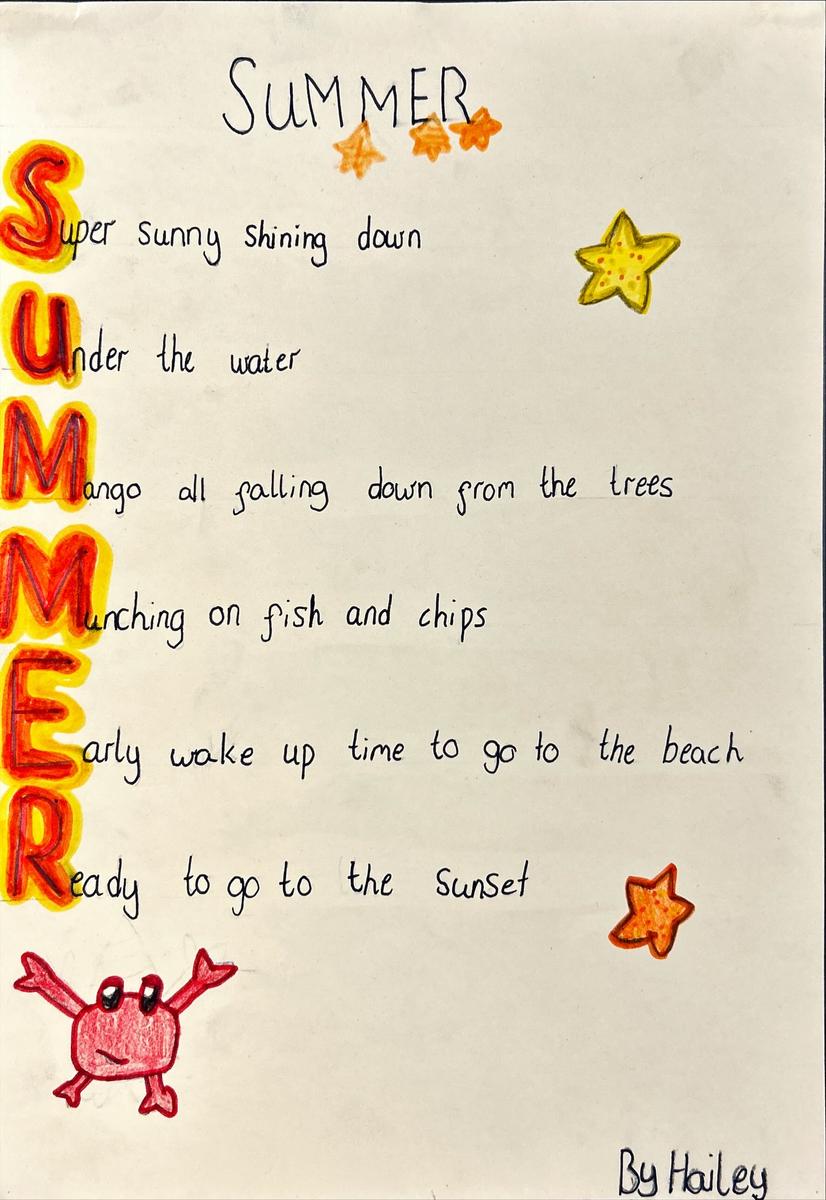 SUMMER
Super sunny shining down
Under the water
Mango all falling down from the trees
Munching on fish and chips
Early wake up time to go to the beach
Ready to go to the sunset
By Hailey